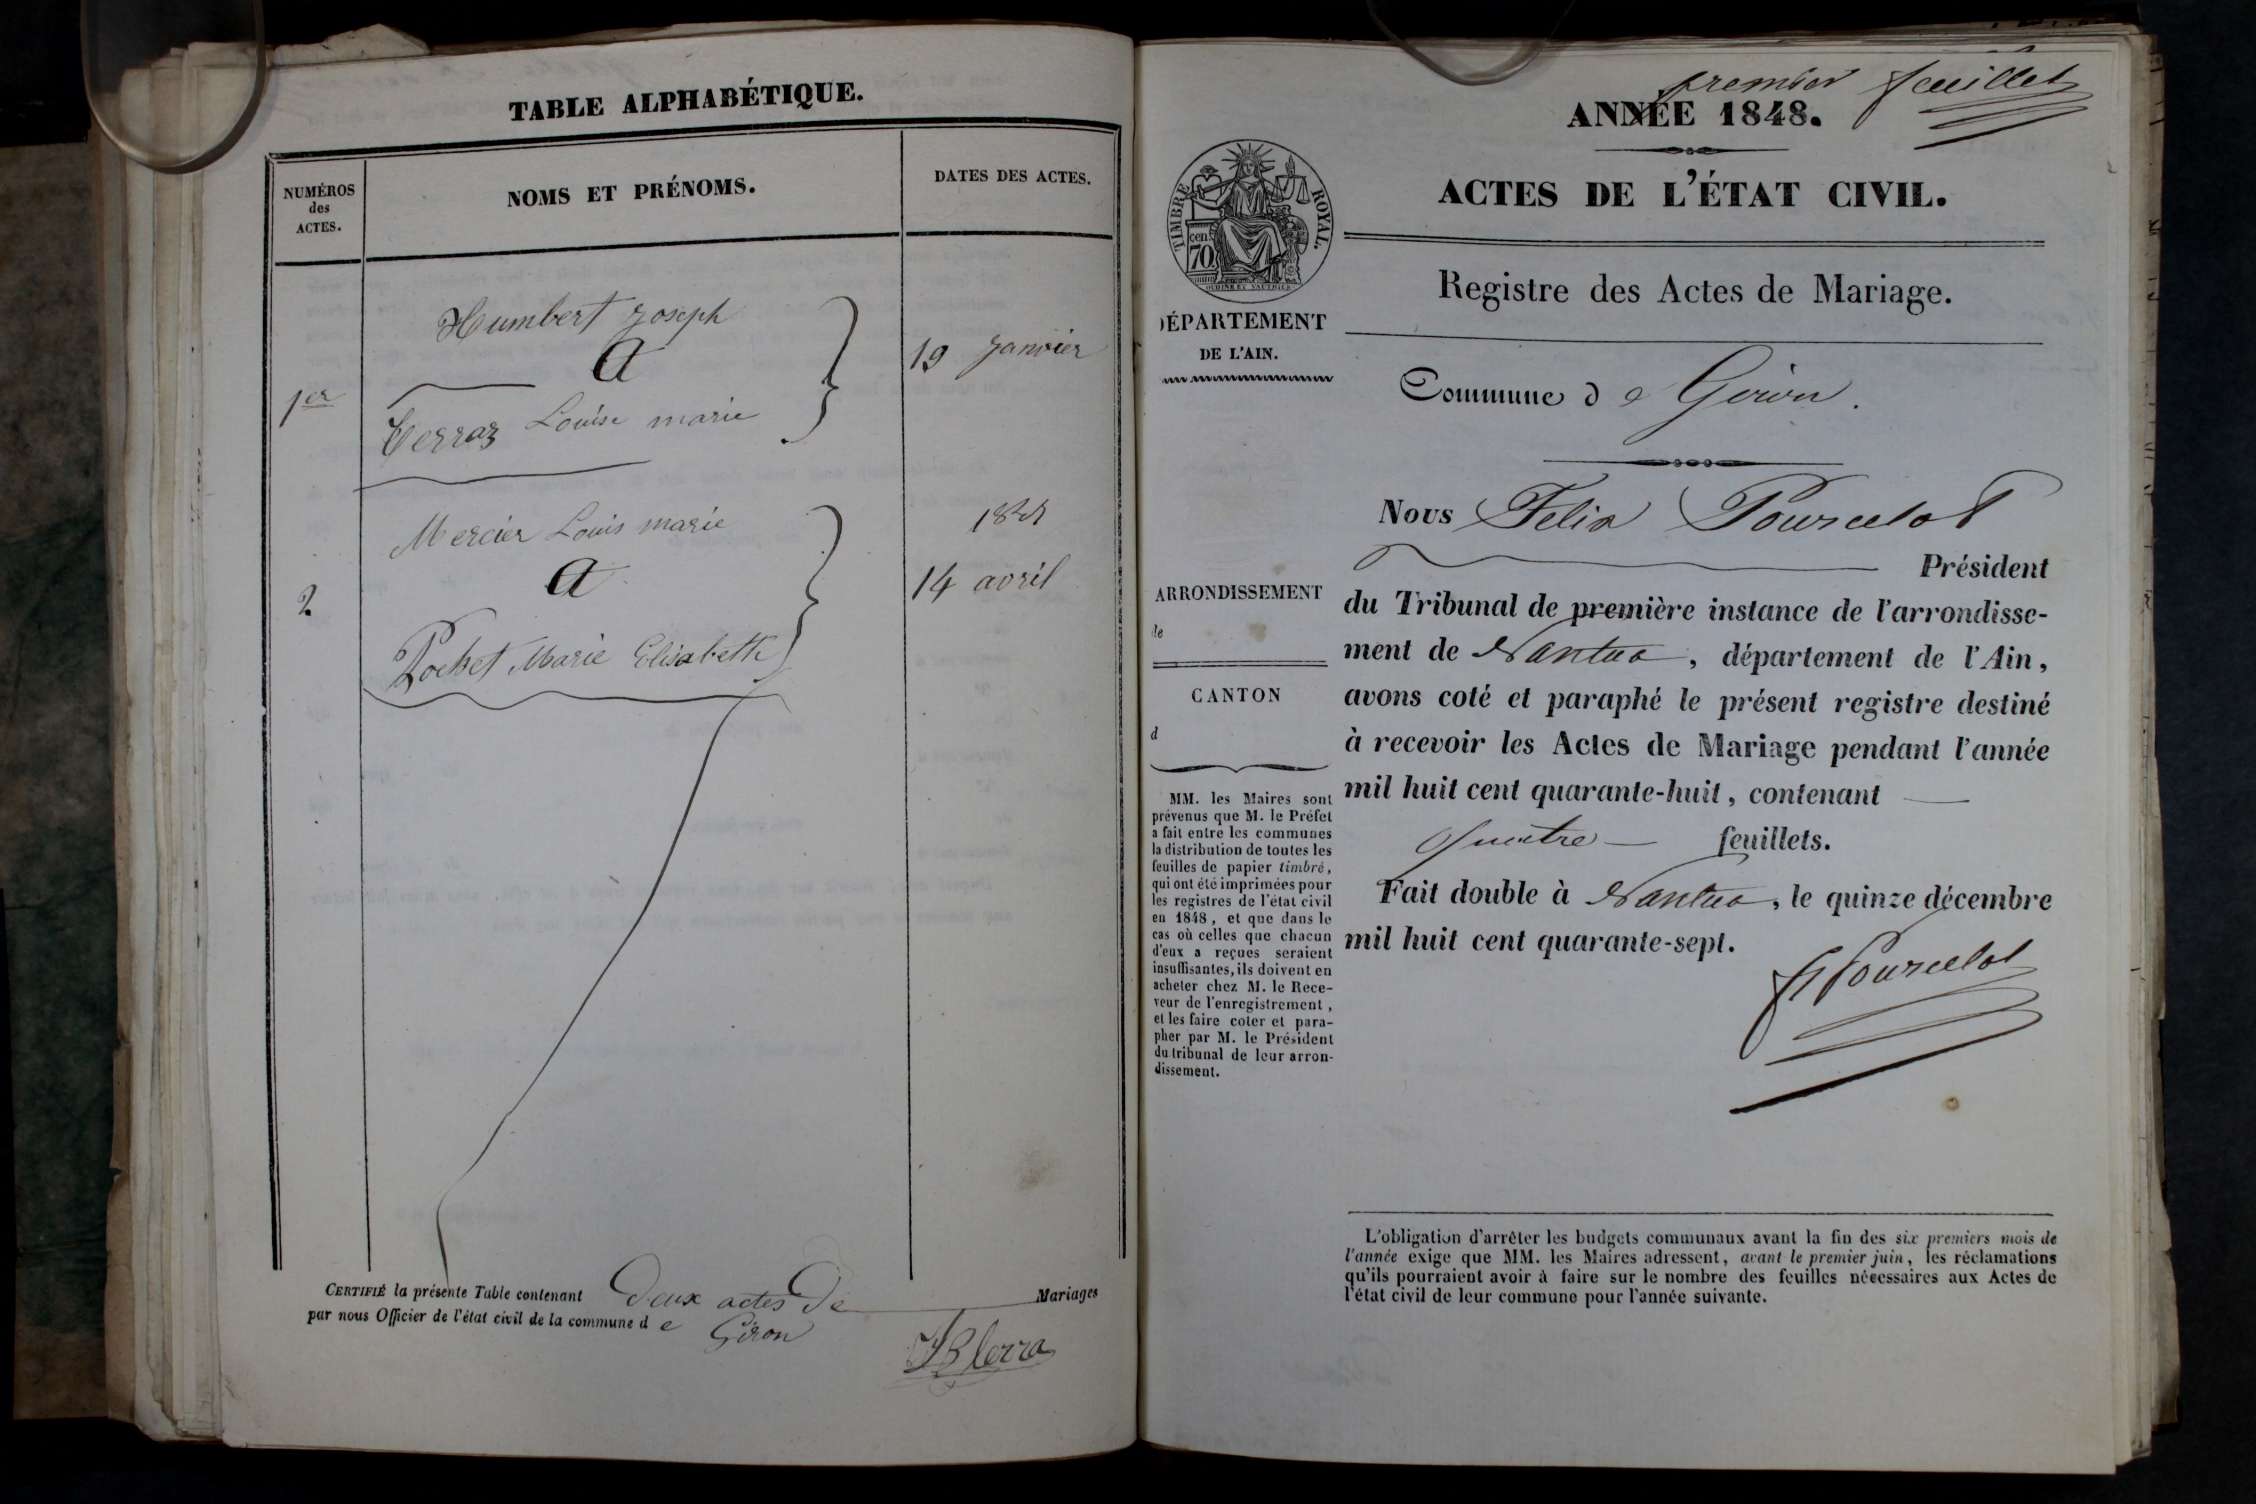 TABLE ALPHABÉTIQUE.
NUMÉROS
des
ACTES.
NOMS ET PRÉNOMS.
DATES DES ACTES.
Humbert Joseph
A
1er
19 Janvier
Terraz Louise marie
Mercier Louis marie
A
2
14 avril
Rochet Marie Elisabeth
CERTIFIÉ la présente Table contenant Deux actes De Mariages
par nous Officier de l'état civil de la commune d e Giron
premier feuillet
ANNÉE 1848.
ACTES DE L'ÉTAT CIVIL.
TIMBRE ROYAL.
cen
70
Registre des Actes de Mariage.
DÉPARTEMENT
DE L'AIN.
Commune d e Giron.
Nous Felix Pourcelot
Président
du Tribunal de première instance de l'arrondisse-
ment de Nantua, département de l'Ain,
avons coté et paraphé le présent registre destiné
à recevoir les Actes de Mariage pendant l'année
mil huit cent quarante-huit, contenant
quatre feuillets.
Fait double à Nantua, le quinze décembre
mil huit cent quarante-sept.
Pourcelot
ARRONDISSEMENT
de
CANTON
d
MM. les Maires sont
prévenus que M. le Préfet
a fait entre les communes
la distribution de toutes les
feuilles de papier timbré,
qui ont été imprimées pour
les registres de l'état civil
en 1848, et que dans le
cas où celles que chacun
d'eux a reçues seraient
insuffisantes, ils doivent en
acheter chez M. le Rece-
veur de l'enregistrement,
et les faire coter et para-
pher par M. le Président
du tribunal de leur arron-
dissement.
L'obligation d'arrêter les budgets communaux avant la fin des six premiers mois de
l'année exige que MM. les Maires adressent, avant le premier juin, les réclamations
qu'ils pourraient avoir à faire sur le nombre des feuilles nécessaires aux Actes de
l'état civil de leur commune pour l'année suivante.